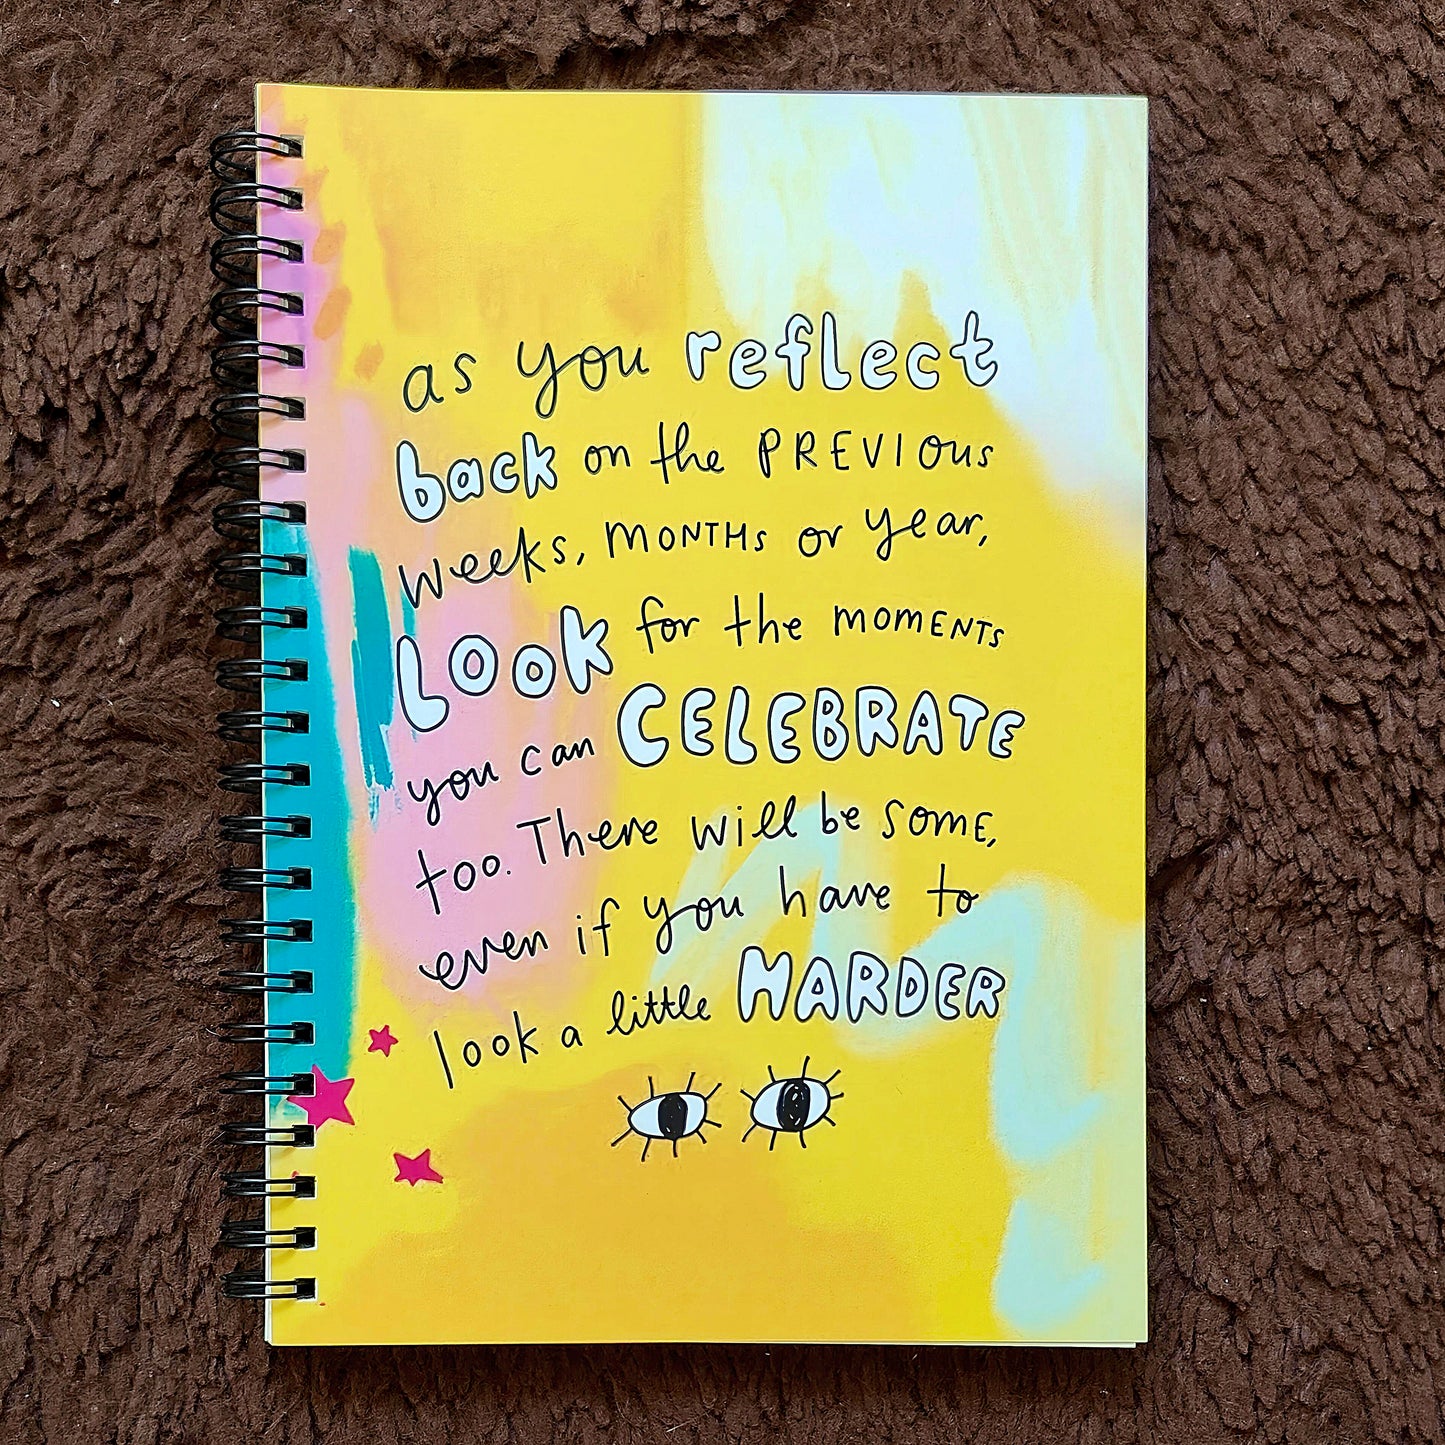 as you reflect
back on the PREVIOUS
weeks, MONTHS or year,
LOOK for the MOMENTS
you can CELEBRATE
too. There will be some,
even if you have to
look a little HARDER